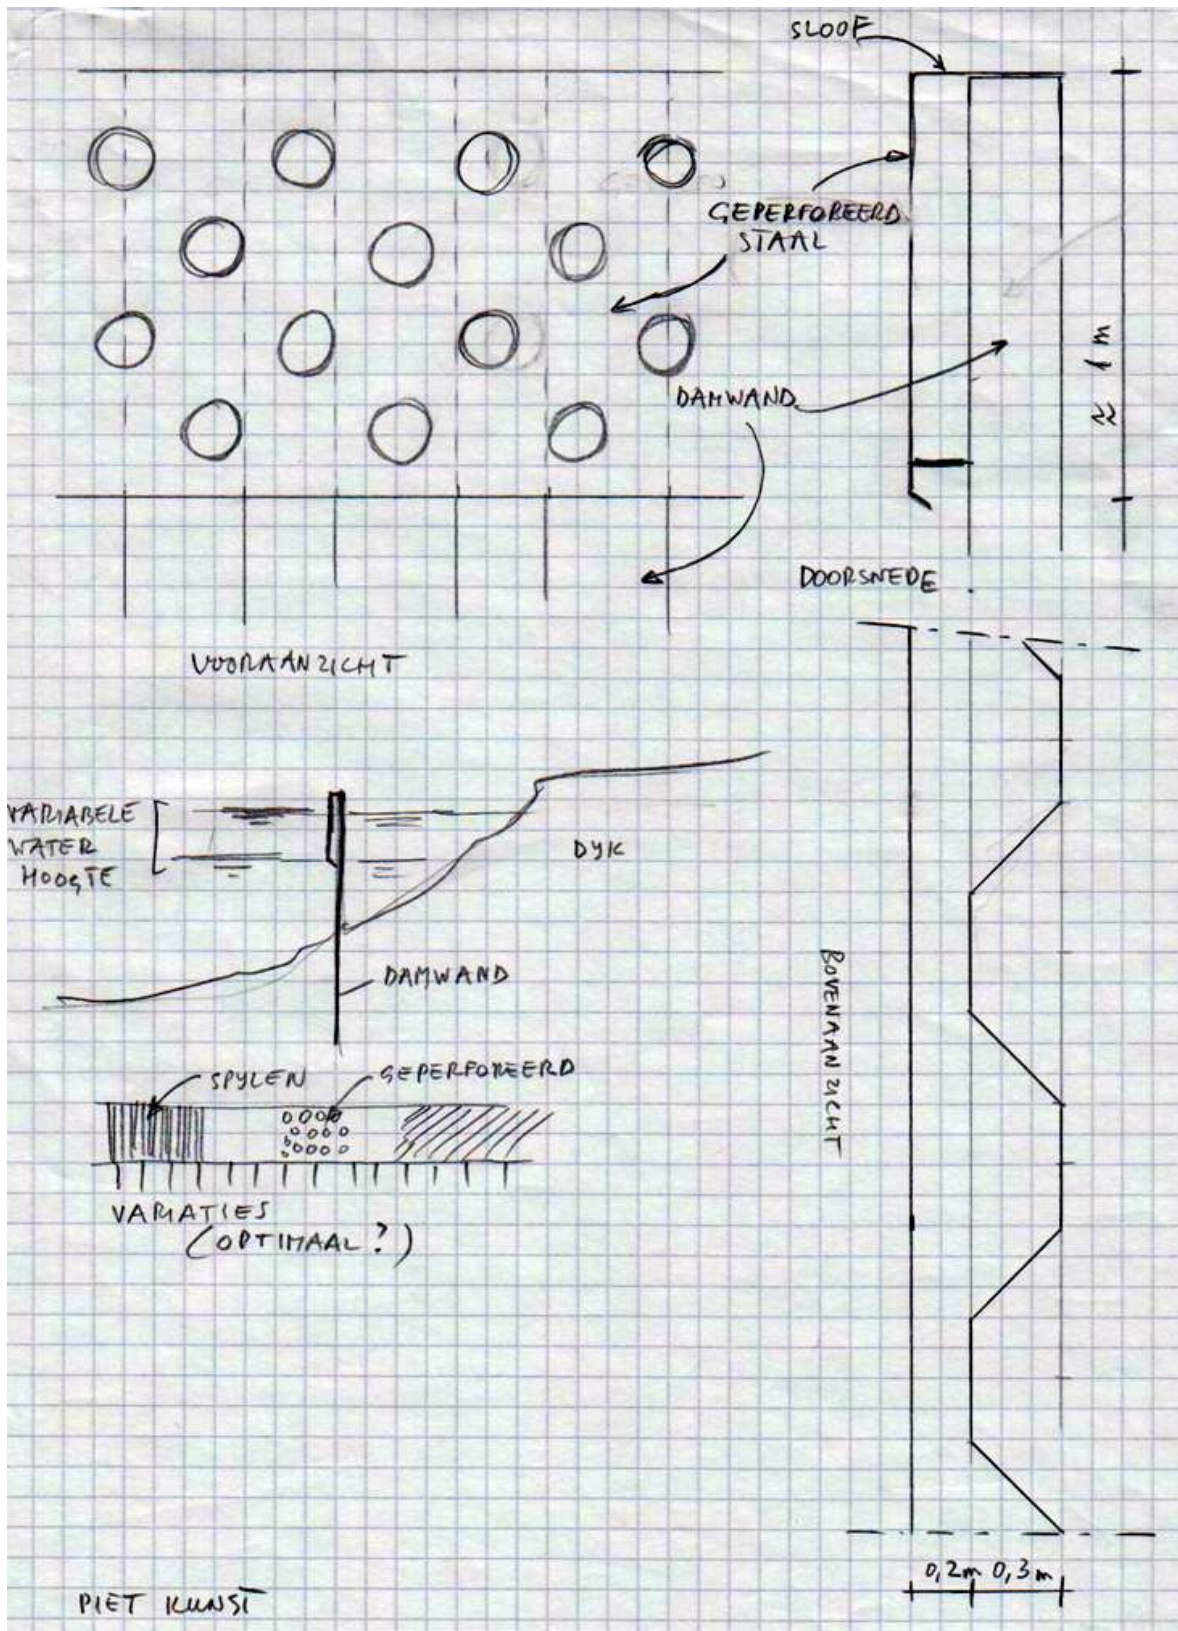 SLOOF
GEPERFOREERD
STAAL
≈ 1 m
DAMWAND
DOORSNEDE
VOORAANZICHT
VARIABELE
WATER
HOOGTE
DYK
DAMWAND
BOVENAANZICHT
SPYLEN
GEPERFOREERD
VARIATIES
(OPTIMAAL?)
0,2m 0,3m
PIET KUNST